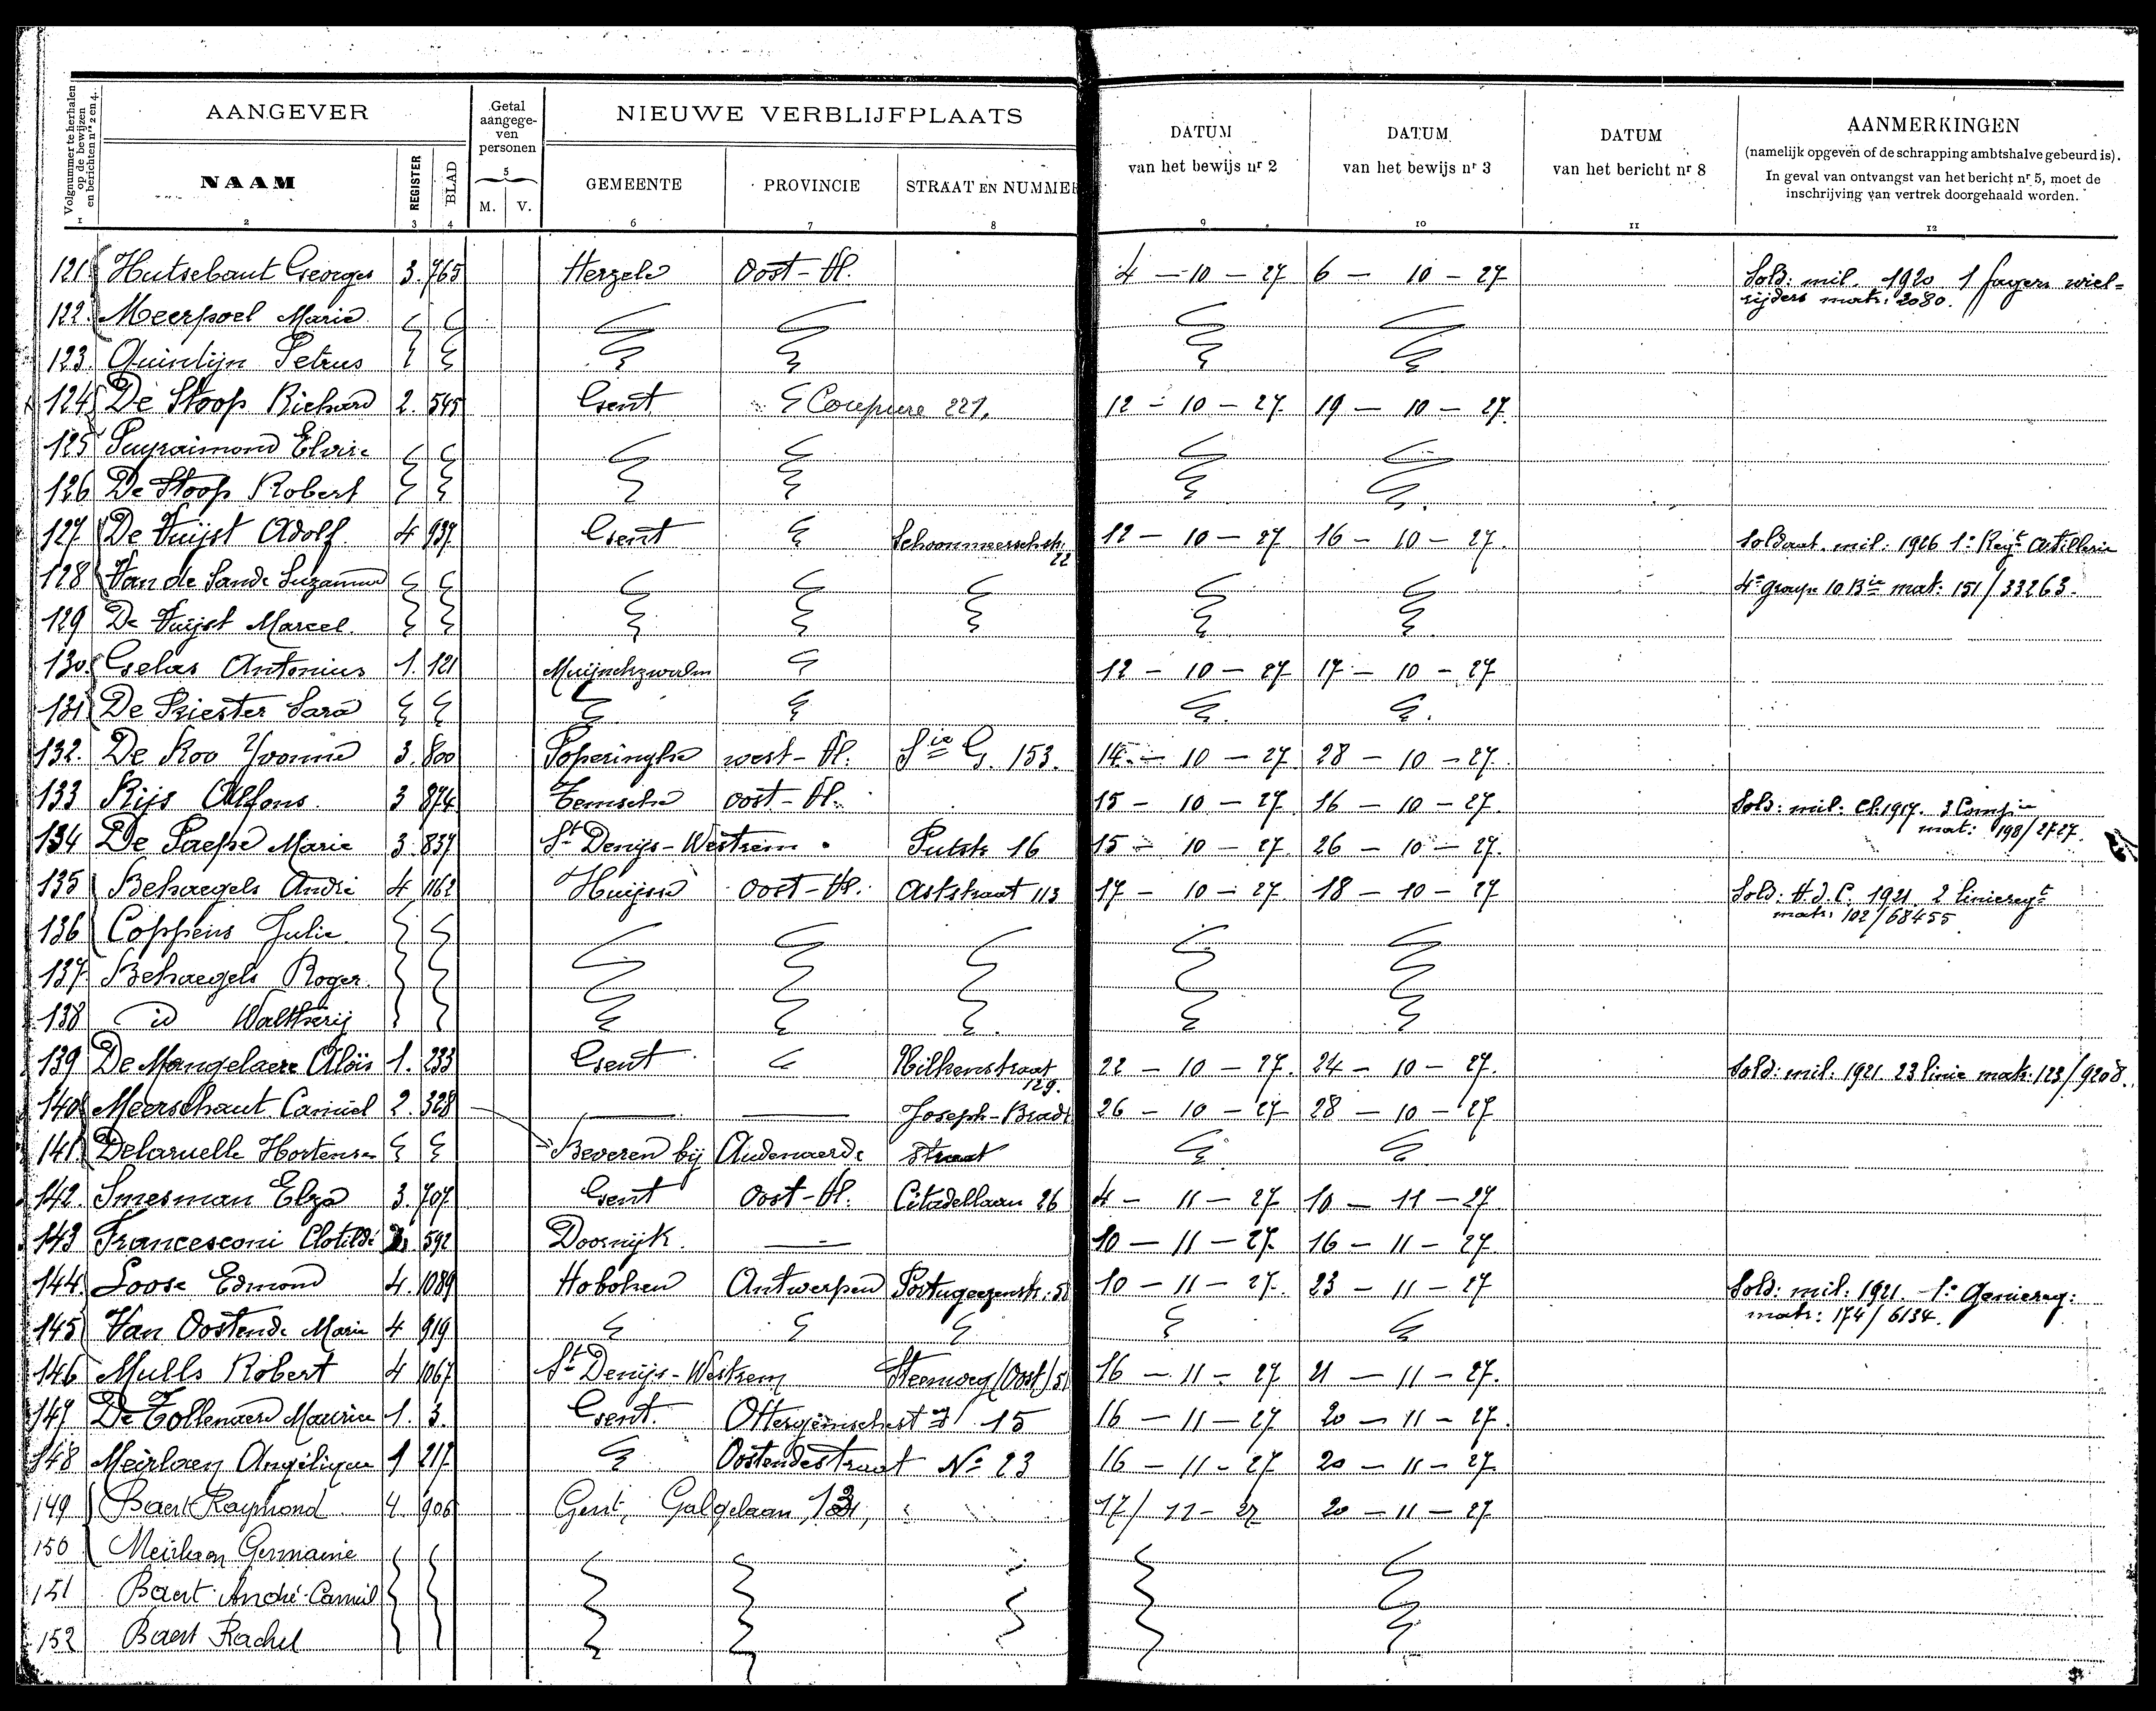 Volgnummer te herhalen op de bewijzen en berichten nrs 2 en 4.
AANGEVER
Getal aangegeven personen
NIEUWE VERBLIJFPLAATS
DATUM van het bewijs nr 2
DATUM van het bewijs nr 3
DATUM van het bericht nr 8
AANMERKINGEN
(namelijk opgeven of de schrapping ambtshalve gebeurd is).
In geval van ontvangst van het bericht nr 5, moet de
inschrijving van vertrek doorgehaald worden.
NAAM REGISTER BLAD M. V. GEMEENTE PROVINCIE STRAAT EN NUMMER
1 2 3 4 5 6 7 8 9 10 11 12
121 Hutsebaut Georges 3. 765 Herzele Oost-Vl. 4 - 10 - 27 6 - 10 - 27 Sold: mil. 1920 1 Jagers wiel=
rijders matr: 2080.
122. Meerpoel Marie
123. Quintijn Petrus
124 De Stoop Richard 2. 545 Gent Coupure 227, 12 - 10 - 27. 19 - 10 - 27.
125 Puyraimond Elvire
126 De Stoop Robert
127 De Vuijst Adolf. 4 937. Gent Schoonmeerschstr. 22 12 - 10 - 27 16 - 10 - 27. Soldaat. mil: 1926 1e Regt Artillerie
128 Van de Sande Suzanna 4e groupe 10 Bie mat: 151/33263.
129 De Vuijst Marcel.
130. Gelas Antonius 1. 121 Muijnckzwalm 12 - 10 - 27 17 - 10 - 27
131 De Priester Sara
132. De Roo Yvonne 3. 800 Poperinghe west-Vl. Sie G. 153. 14 - 10 - 27. 28 - 10 - 27.
133 Rijs Alfons. 3 874 Temsche oost-Vl. 15 - 10 - 27. 16 - 10 - 27. Sold: mil: Cl. 1917. 3 Compie
mat: 198/2727.
134 De Paepe Marie 3. 837 St Denijs-Westrem. Putstr 16 15 - 10 - 27. 26 - 10 - 27.
135 Behaegels André 4 1162 Huijsse oost-Vl. Aststraat 113 17 - 10 - 27 18 - 10 - 27 Sold: V.J.C. 1921. 2 linieregt
matr: 102/68455
136 Coppens Julie.
137. Behaegels Roger.
138 id Waltherij
139 De Mangelaere Aloïs 1. 233 Gent Wilkenstraat 129. 22 - 10 - 27. 24 - 10 - 27. Sold: mil: 1921. 23 linie matr: 123/9208.
140 Meerschaut Camiel 2. 328 Joseph-Bradt 26 - 10 - 27 28 - 10 - 27
141. Delaruelle Hortense Beveren bij Audenaerde straat
142. Smesman Elza 3. 707. Gent Oost-Vl. Citadellaan 26 4 - 11 - 27 10 - 11 - 27
143 Francesconi Clotilde 592 Doornijk. 10 - 11 - 27. 16 - 11 - 27
144. Loose Edmond 4. 1089 Hoboken Antwerpen Portugeezenstr. 10 - 11 - 27. 23 - 11 - 27 Sold: mil: 1921. 1e Geniereg:
matr: 174/6134.
145 Van Oostende Marie 4 919
146 Mulls Robert 4 1067 St Denijs-Westrem Steenweg (Oost) 16 - 11 - 27 21 - 11 - 27.
147 De Tollenaere Maurice 1. 3. Gent. Ottergemschest wg 15 16 - 11 - 27 20 - 11 - 27.
148 Meirlaen Angélique 1 217. Oostendestraat No 23 16 - 11 - 27 20 - 11 - 27.
149 Baert Raymond. 4. 906 Gent, Galgelaan, 17/ 11 - 27 20 - 11 - 27
150 Meirlaen Germaine
151 Baert André-Camiel
152 Baert Rachel